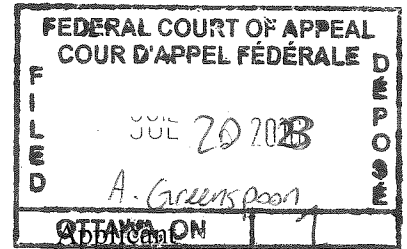 FEDERAL COURT OF APPEAL
COUR D'APPEL FÉDÉRALE
FILED
DÉPOSÉ
JUL 20 2023
A. Greenspoon
OTTAWA, ON 1
Applicant